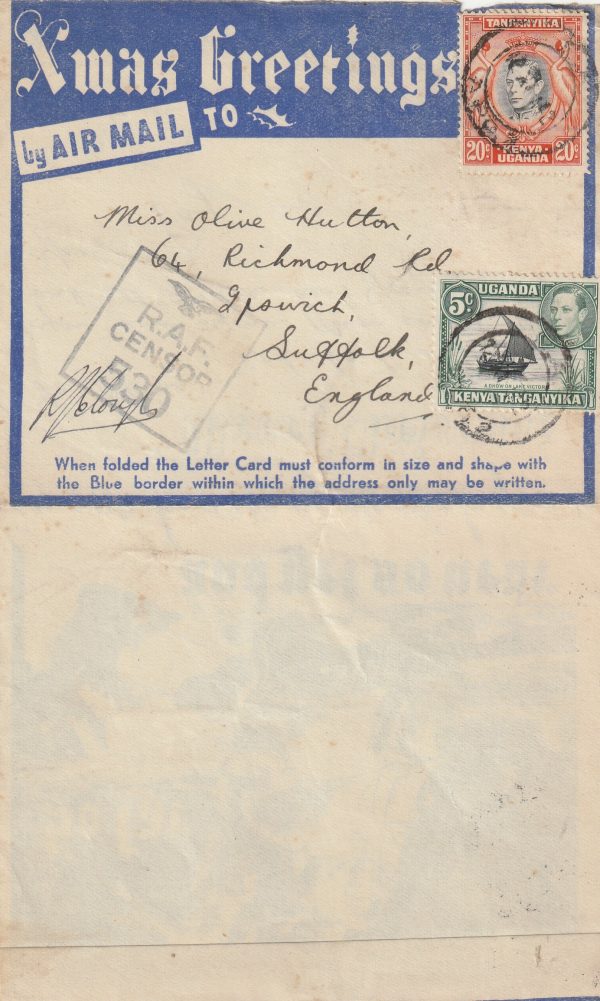 Xmas Greetings
by AIR MAIL
TO
TANGANYIKA
20c 20c
KENYA
UGANDA
Miss Olive Hutton,
64, Richmond Rd
Ipswich,
Suffolk,
England
R.A.F.
CENSOR
530
UGANDA
5c
A DHOW ON LAKE VICTORIA
KENYA TANGANYIKA
When folded the Letter Card must conform in size and shape with
the Blue border within which the address only may be written.